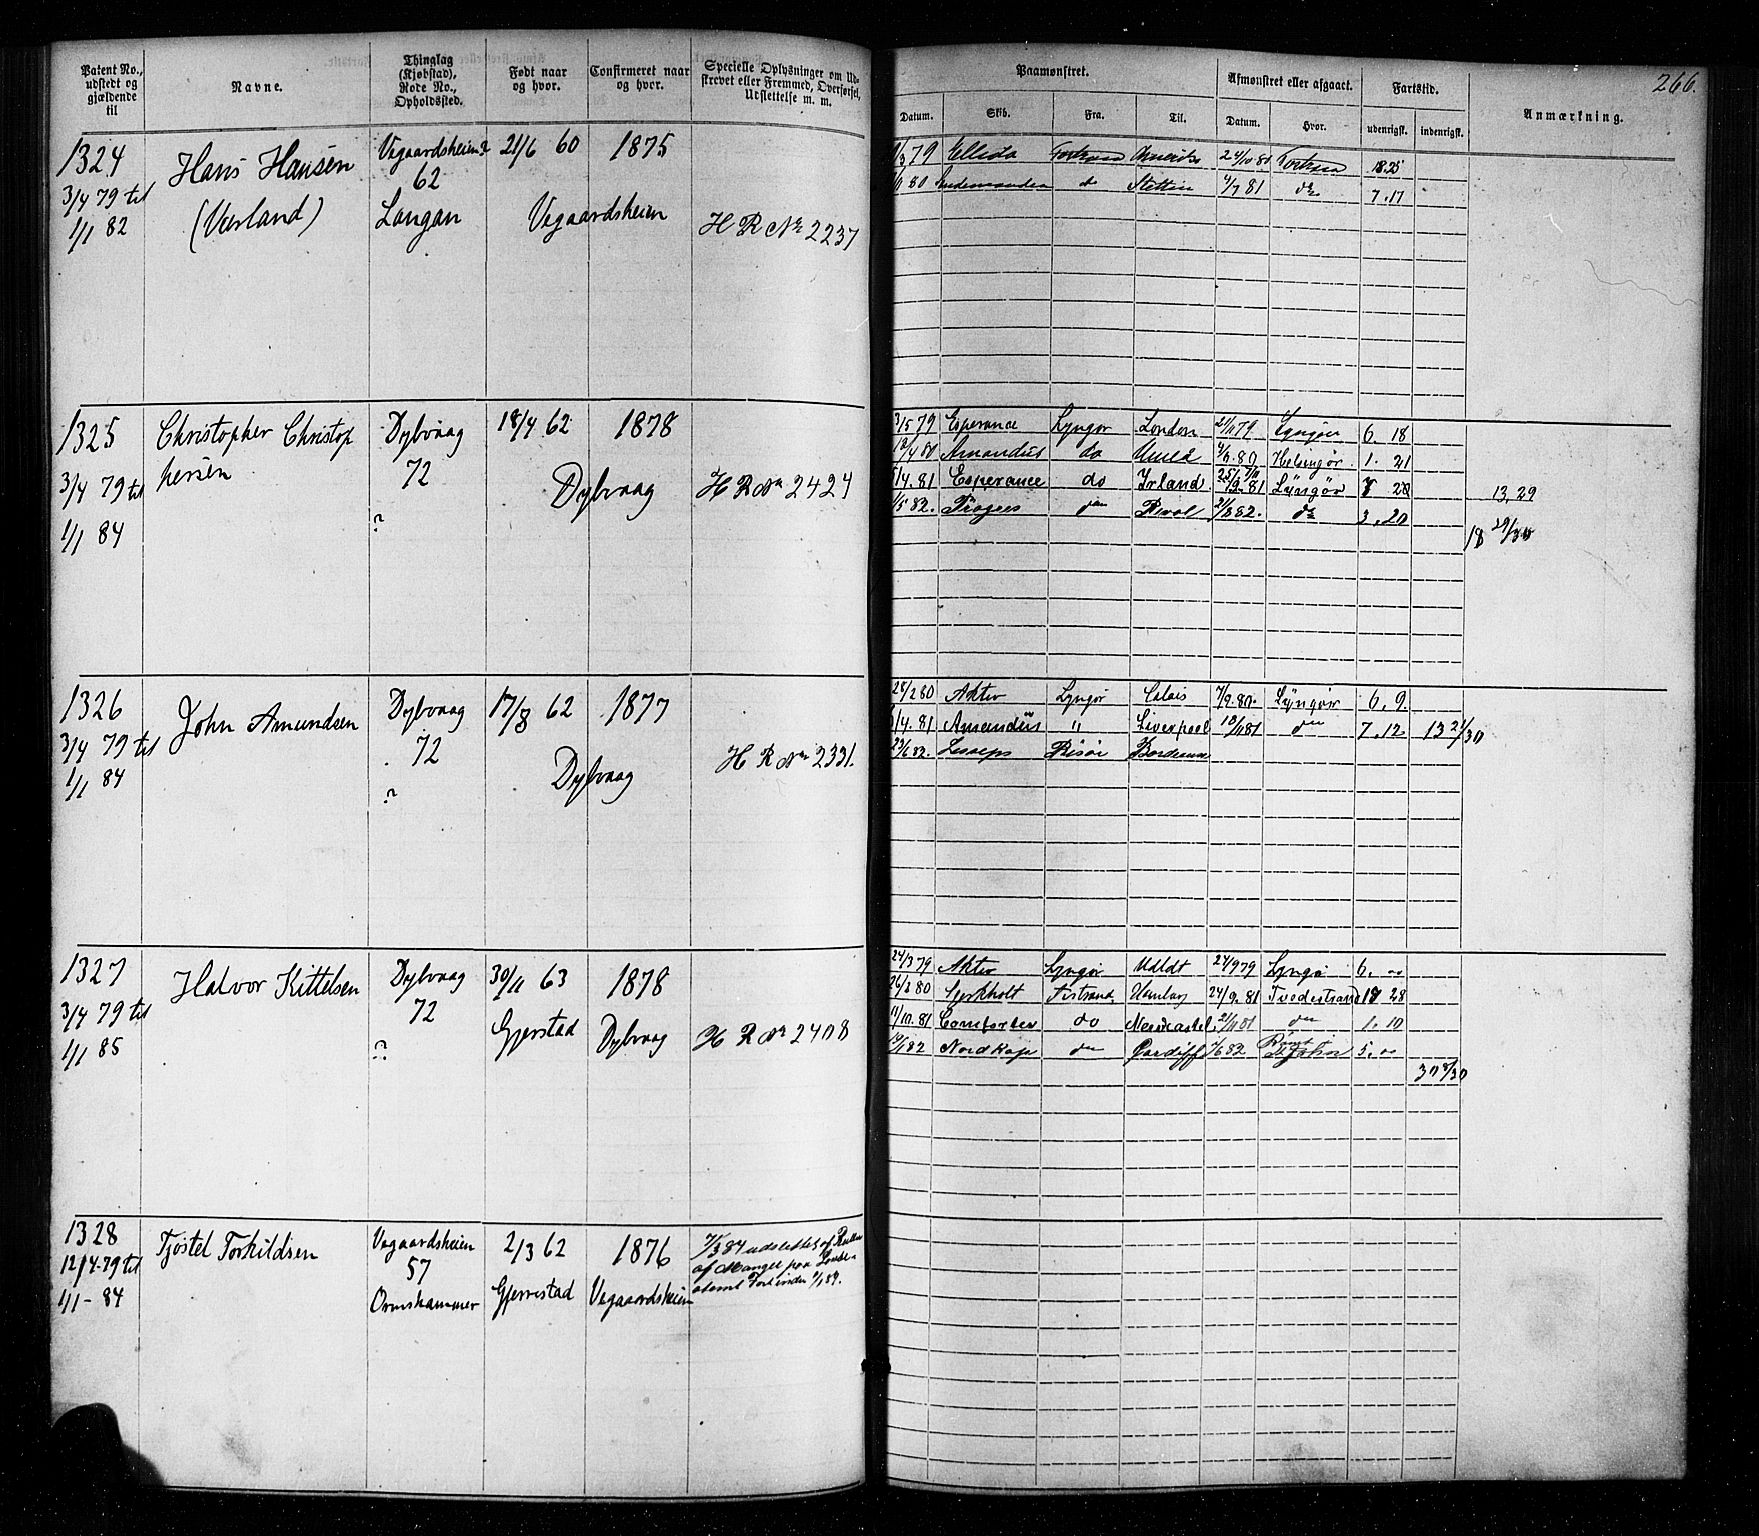 266.
Patent No., udstedt og gjældende til
Navne.
Thinglag (Kjøbstad), Rode No., Opholdssted.
Født naar og hvor.
Confirmeret naar og hvor.
Specielle Oplysninger om Udskrevet eller Fremmed, Overførsel, Udslettelse m. m.
Paamønstret.
Afmønstret eller afgaaet.
Fartstid.
Anmærkning.
Datum. Skib. Fra. Til. Datum. Hvor. udenrigsk. indenrigsk.
1324 Hans Hansen Vegaardsheien ? 21/6 60 1875
3/4 79 til 62
1/1 82 (Værland) Langan Vegaardsheien H R No 2237
79 Ellida Amerika 24/10 80 18.25
80 do Stettin 4/7 81 do 7.17
1325 Christopher Christop Dybvaag 18/4 62 1878
3/4 79 til hersen 72 Dybvaag H R No 2424
?
1/1 84
3/5 79 Esperance Lyngør London 21/11 79 Lyngør 6. 18
12/4 80 Amandus do Umeå 4/6. 80 Helsingør 1. 21
/4. 81 Esperance do Irland 81 Lyngør 28 13,29
1/5 82. do Reval 21/8 82. do 3.20
18 29/30
1326 John Amundsen Dybvaag 17/8 62 1877
3/4 79 til 72 Dybvaag H R No 2331.
1/1 84 ?
28/2 80 Aktiv Lyngør Calais 7/9. 80. Lyngør 6. 9.
/4. 81 Amandus " Liverpool do 7. 12 13 21/30
23/6 82. Risør Bordeaux
1327 Halvor Kittelsen Dybvaag 30/11 63 1878
3/4 79 til 72 Gjerstad Dybvaag H R No 2408
1/1 85 ?
24/3 79 Aktiv Lyngør Udldt 24/9 79 Lyngør 6. "
26/3 80 24/9. 81 Tvedestrand 18 28
11/10. 81 Comforter do Newcastel 21/11 81 do 1. 10
82 Nordkap do Cardiff 6 82 St John 5. "
30 8/30
1328 Tjøstel Torkildsen Vegaardsheien 2/3 62 1876 7/3 84 udslettet af Rullen
12/4. 79 til 57 af Mangel paa
1/1 - 84 Ormskammer Gjerrestad Vegaardsheien 84.